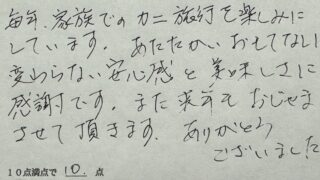 毎年、家族でのカニ旅行を楽しみに
しています。あたたかいおもてなし
変わらない安心感と美味しさに
感謝です。また来年もおじゃま
させて頂きます。ありがとう
ございました
10点満点で 10. 点